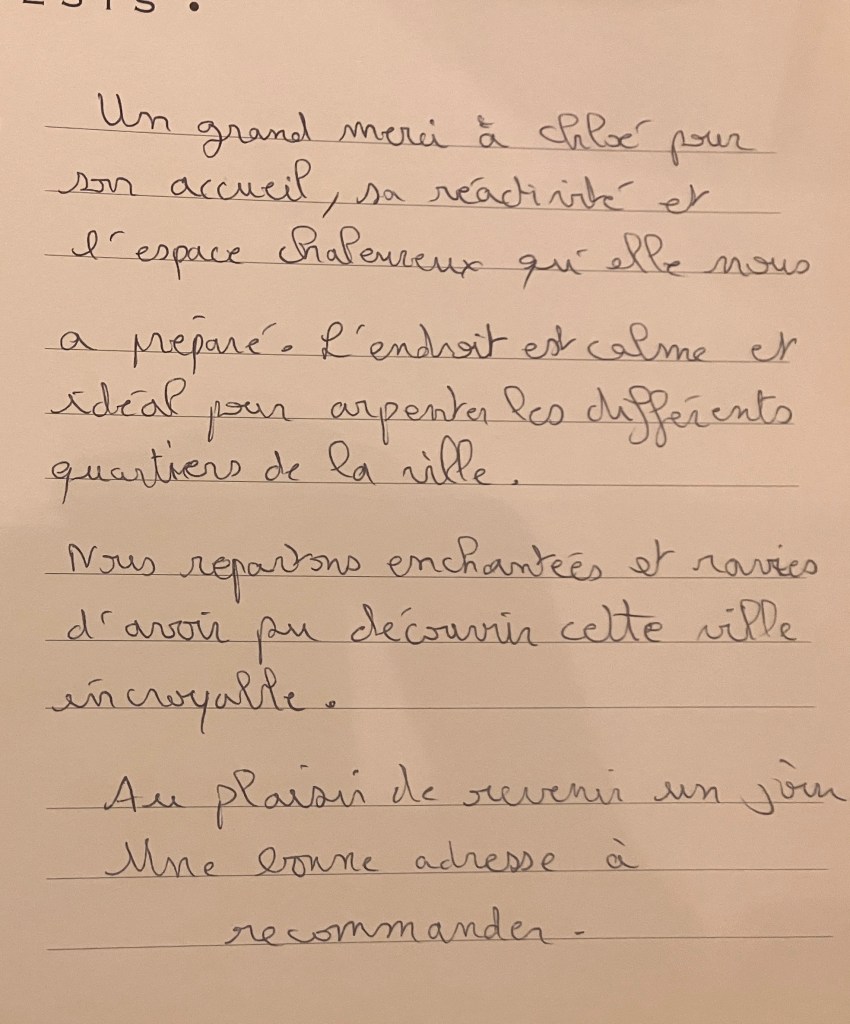 Un grand merci à Chloé pour
son accueil, sa réactivité et
l'espace chaleureux qu'elle nous
a préparé. L'endroit est calme et
idéal pour arpenter les différents
quartiers de la ville.
Nous repartons enchantées et ravies
d'avoir pu découvrir cette ville
incroyable.
Au plaisir de revenir un jour
Une bonne adresse à
recommander.